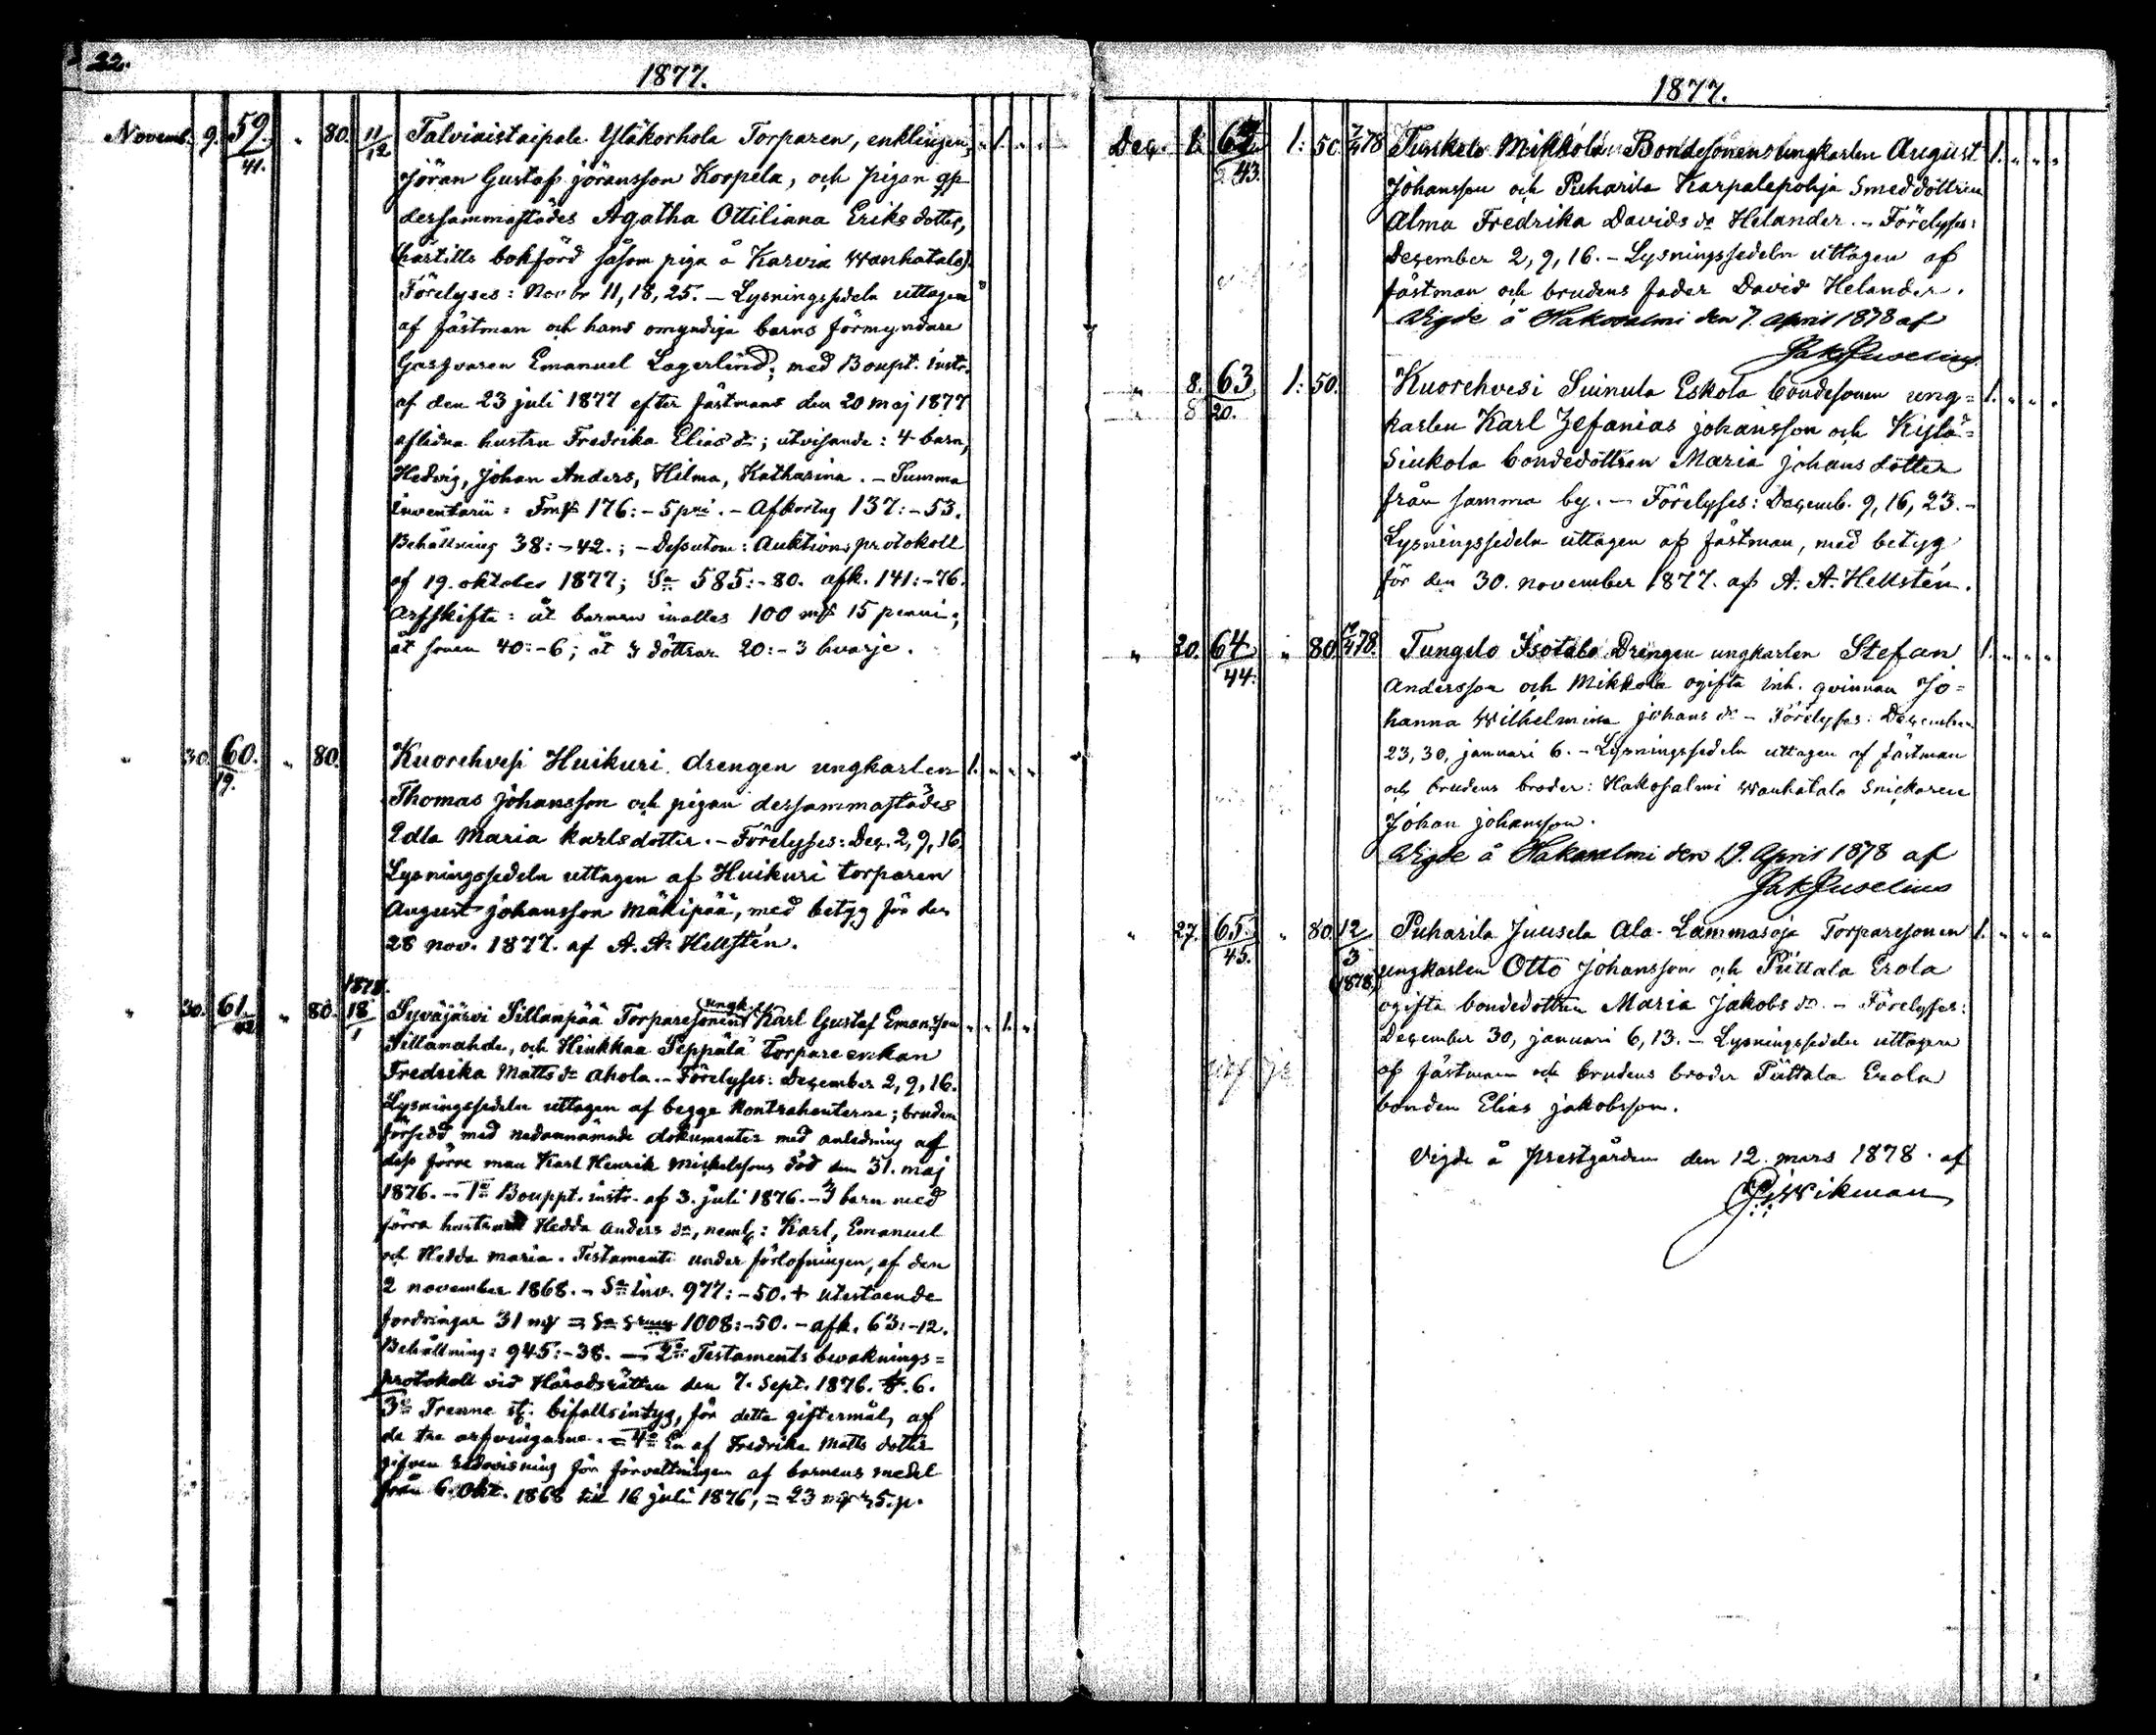 32.
1877.
Novemb. 9. 59. 41. " 80. 11/12 Talviaistaipale Yläkorhola Torparen, enklingen, " 1. " "
Jöran Gustaf Jöransson Korpela, och pigan
dersammastädes Agatha Ottiliana Eriks dotter,
(härtills bokförd såsom piga å Karvia Wanhatalo).
Förelyses: Nov br 11, 18, 25. — Lysningssedeln uttagen
af fästman och hans omyndiga barns förmyndare
Emanuel Lagerlind; med Boupt. instr.
af den 23 juli 1877 efter fästmans den 20 maj 1877
aflidna hustru Fredrika Elias dr; utvisande: 4 barn,
Hedvig, Johan Anders, Hilma, Katharina. — Summa
inventarii: Fmk 176: - 5 pni. - Afkortng 137: - 53.
Behållning 38: - 42.; - Dessutom: Auktions protokoll
af 19. oktober 1877; Sa 585: - 80. afk. 141: - 76.
Arfskifte: åt barnen inalles 100 mk 15 penni;
åt sonen 40: - 6; åt 3 döttrar 20: - 3 hvarje.
" 30. 60. 19. " 80. Kuorehvesi Huikuri drengen ungkarlen 1. " " "
Thomas Johansson och pigan dersammastädes
Edla Maria Karlsdotter. - Förelyses: Dec. 2, 9, 16.
Lysningssedeln uttagen af Huikuri torparen
August Johansson Mäkipää, med betyg för den
28 nov. 1877. af A. A. Hellstén.
1878.
" 30. 61. 42 " 80. 18/1 Syväjärvi Sillanpää Torparesonen ungk. Karl Gustaf Emans son " " 1. "
Sillanahde, och Hiukkaa Seppälä Torpare enkan
Fredrika Matts dr Ahola. - Förelyses: December 2, 9, 16.
Lysningssedeln uttagen af begge kontrahenterne; bruden
försedd med nedannämnde dokumenter med anledning af
dess förre man Karl Henrik Mickelssons död den 31. maj
1876. — 1o Bouppt. instr. af 3. juli 1876. - 3 barn med
förra hustrun Hedda Anders dr, neml: Karl, Emanuel
och Hedda Maria. Testamente under förlofningen, af den
2 november 1868. - Sa inv. 977: - 50. + utestående
fordringar 31 mk = Sa 1008: - 50. - afk. 63: - 12.
Behållning: 945: - 38. — 2o Testaments bevaknings=
protokoll vid Häradsrätten den 7. Sept. 1876. §. 6.
3o Trenne st. bifallsintyg, för detta giftermål, af
de tre arfvingarne. = 4o En af Fredrika Matts dotter
gifven redovisning för förvaltningen af barnens medel
från 6. Okt. 1868 till 16 juli 1876, = 23 mk 5. p.
1877.
Dec. 1. 62 43. 1: 50 7/4 78 Mikkola Bondesonen ungkarlen August 1. " " "
Johansson och Puharila Karpalepohja Smeddottren
Alma Fredrika Davids dr Helander. - Förelyses:
December 2, 9, 16. - Lysningssedeln uttagen af
fästman och brudens fader David Helander.
Vigde å Hakosalmi den 7. April 1878 af
Jak Juvelius
" 8. 63 20. 1: 50. Kuorehvesi Suinula Eskola bondesonen ung= 1. " " "
karlen Karl Zefanias Johansson och Kylä=
Siukola bondedottren Maria Johans dotter
från samma by. — Förelyses: Decemb. 9, 16, 23. -
Lysningssedeln uttagen af fästman, med betyg
för den 30. november 1877. af A. A. Hellstén.
" 20. 64 44. " 80. 19/4 78. Tungelo Isotalo Drengen ungkarlen Stefan 1. " " "
Andersson och Mikkola ogifta inh. qvinnan Jo=
hanna Wilhelmina Johans dr - Förelyses: December
23, 30, januari 6. - Lysningssedeln uttagen af fästman
och brudens broder: Hakosalmi Wanhatalo Snickaren
Johan Johansson.
Vigde å Hakosalmi den 19. April 1878 af
Jak Juvelius
" 27. 65. 45. " 80. 12/3 (1878) Puharila Juusela Ala-Lammasoja Torparesonen 1. " " "
ungkarlen Otto Johansson och Püttala Erola
ogifta bondedottren Maria Jakobs dr. - Förelyses:
December 30, januari 6, 13. - Lysningssedeln uttagen
af fästman och brudens broder Püttala Erola
bonden Elias Jakobsson.
Vigde å prestgården den 12. mars 1878. af
Wikman